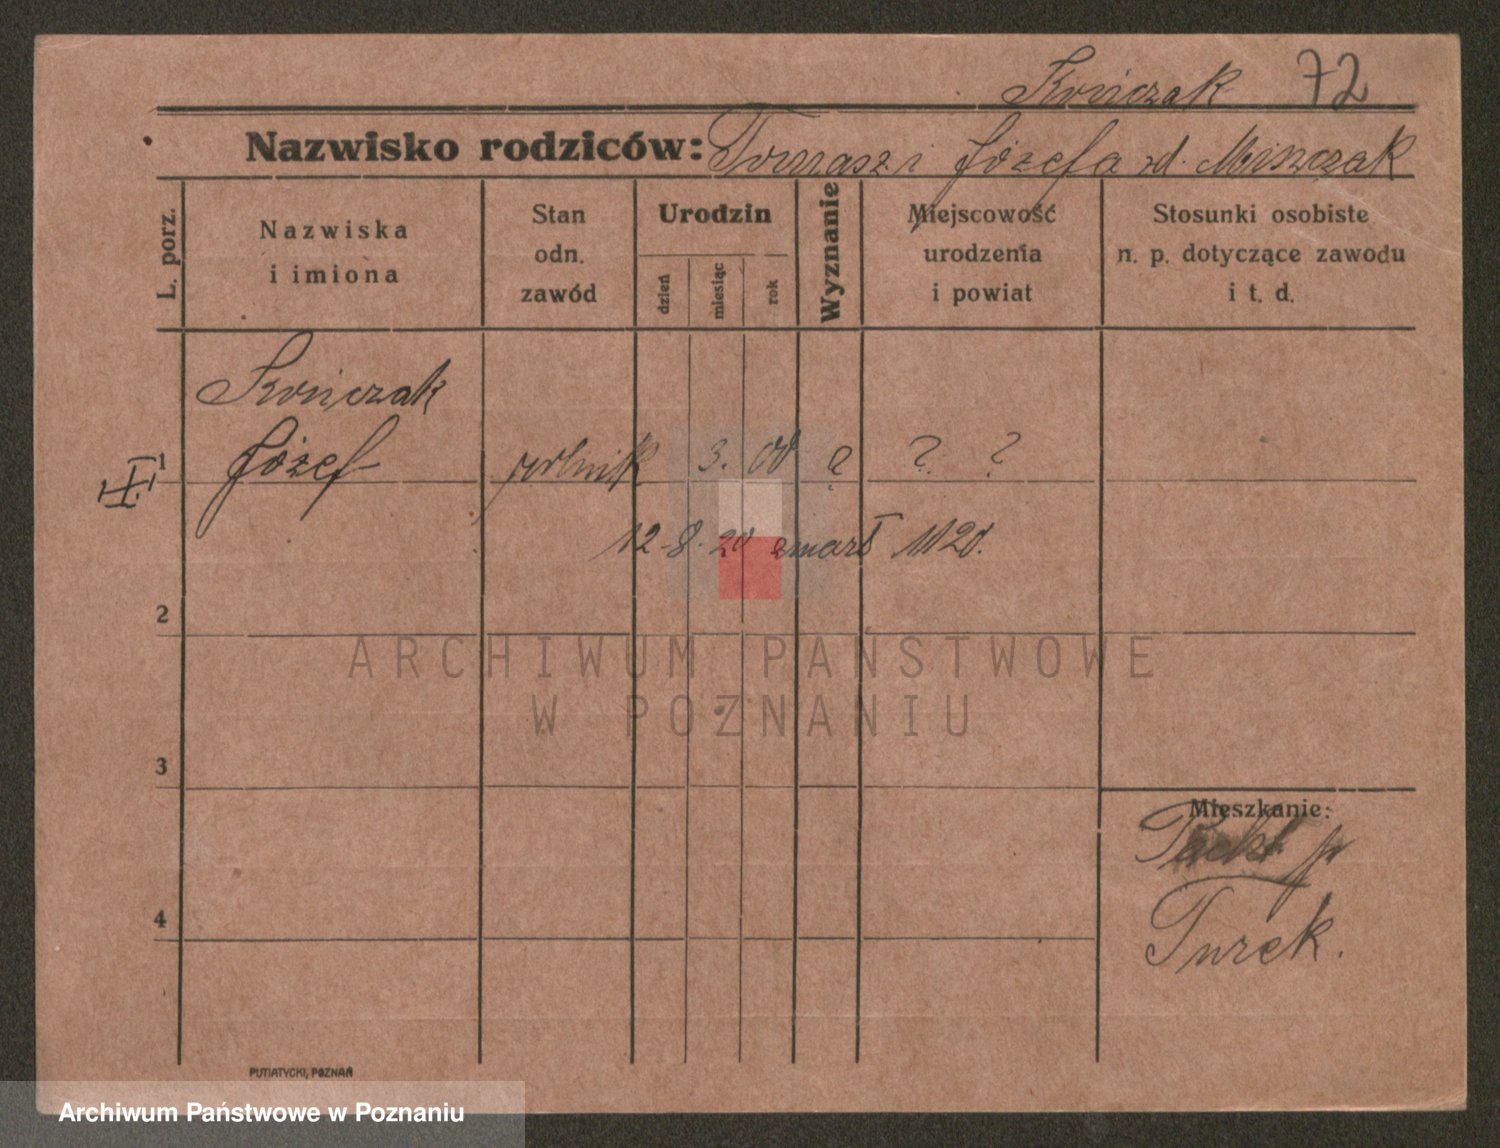 Kończak 72
Nazwisko rodziców: Tomasz i Józefa zd. Miszczak
L. porz.
Nazwiska
i imiona
Stan
odn.
zawód
Urodzin
dzień
miesiąc
rok
Wyznanie
Miejscowość
urodzenia
i powiat
Stosunki osobiste
n. p. dotyczące zawodu
i t. d.
Kończak
1 Józef robotnik 3. 00 ? ? ?
12.8.20 zmarł
2
ARCHIWUM PAŃSTWOWE
W POZNANIU
3
Mieszkanie:
4
Turek.
PUTIATYCKI, POZNAŃ
Archiwum Państwowe w Poznaniu